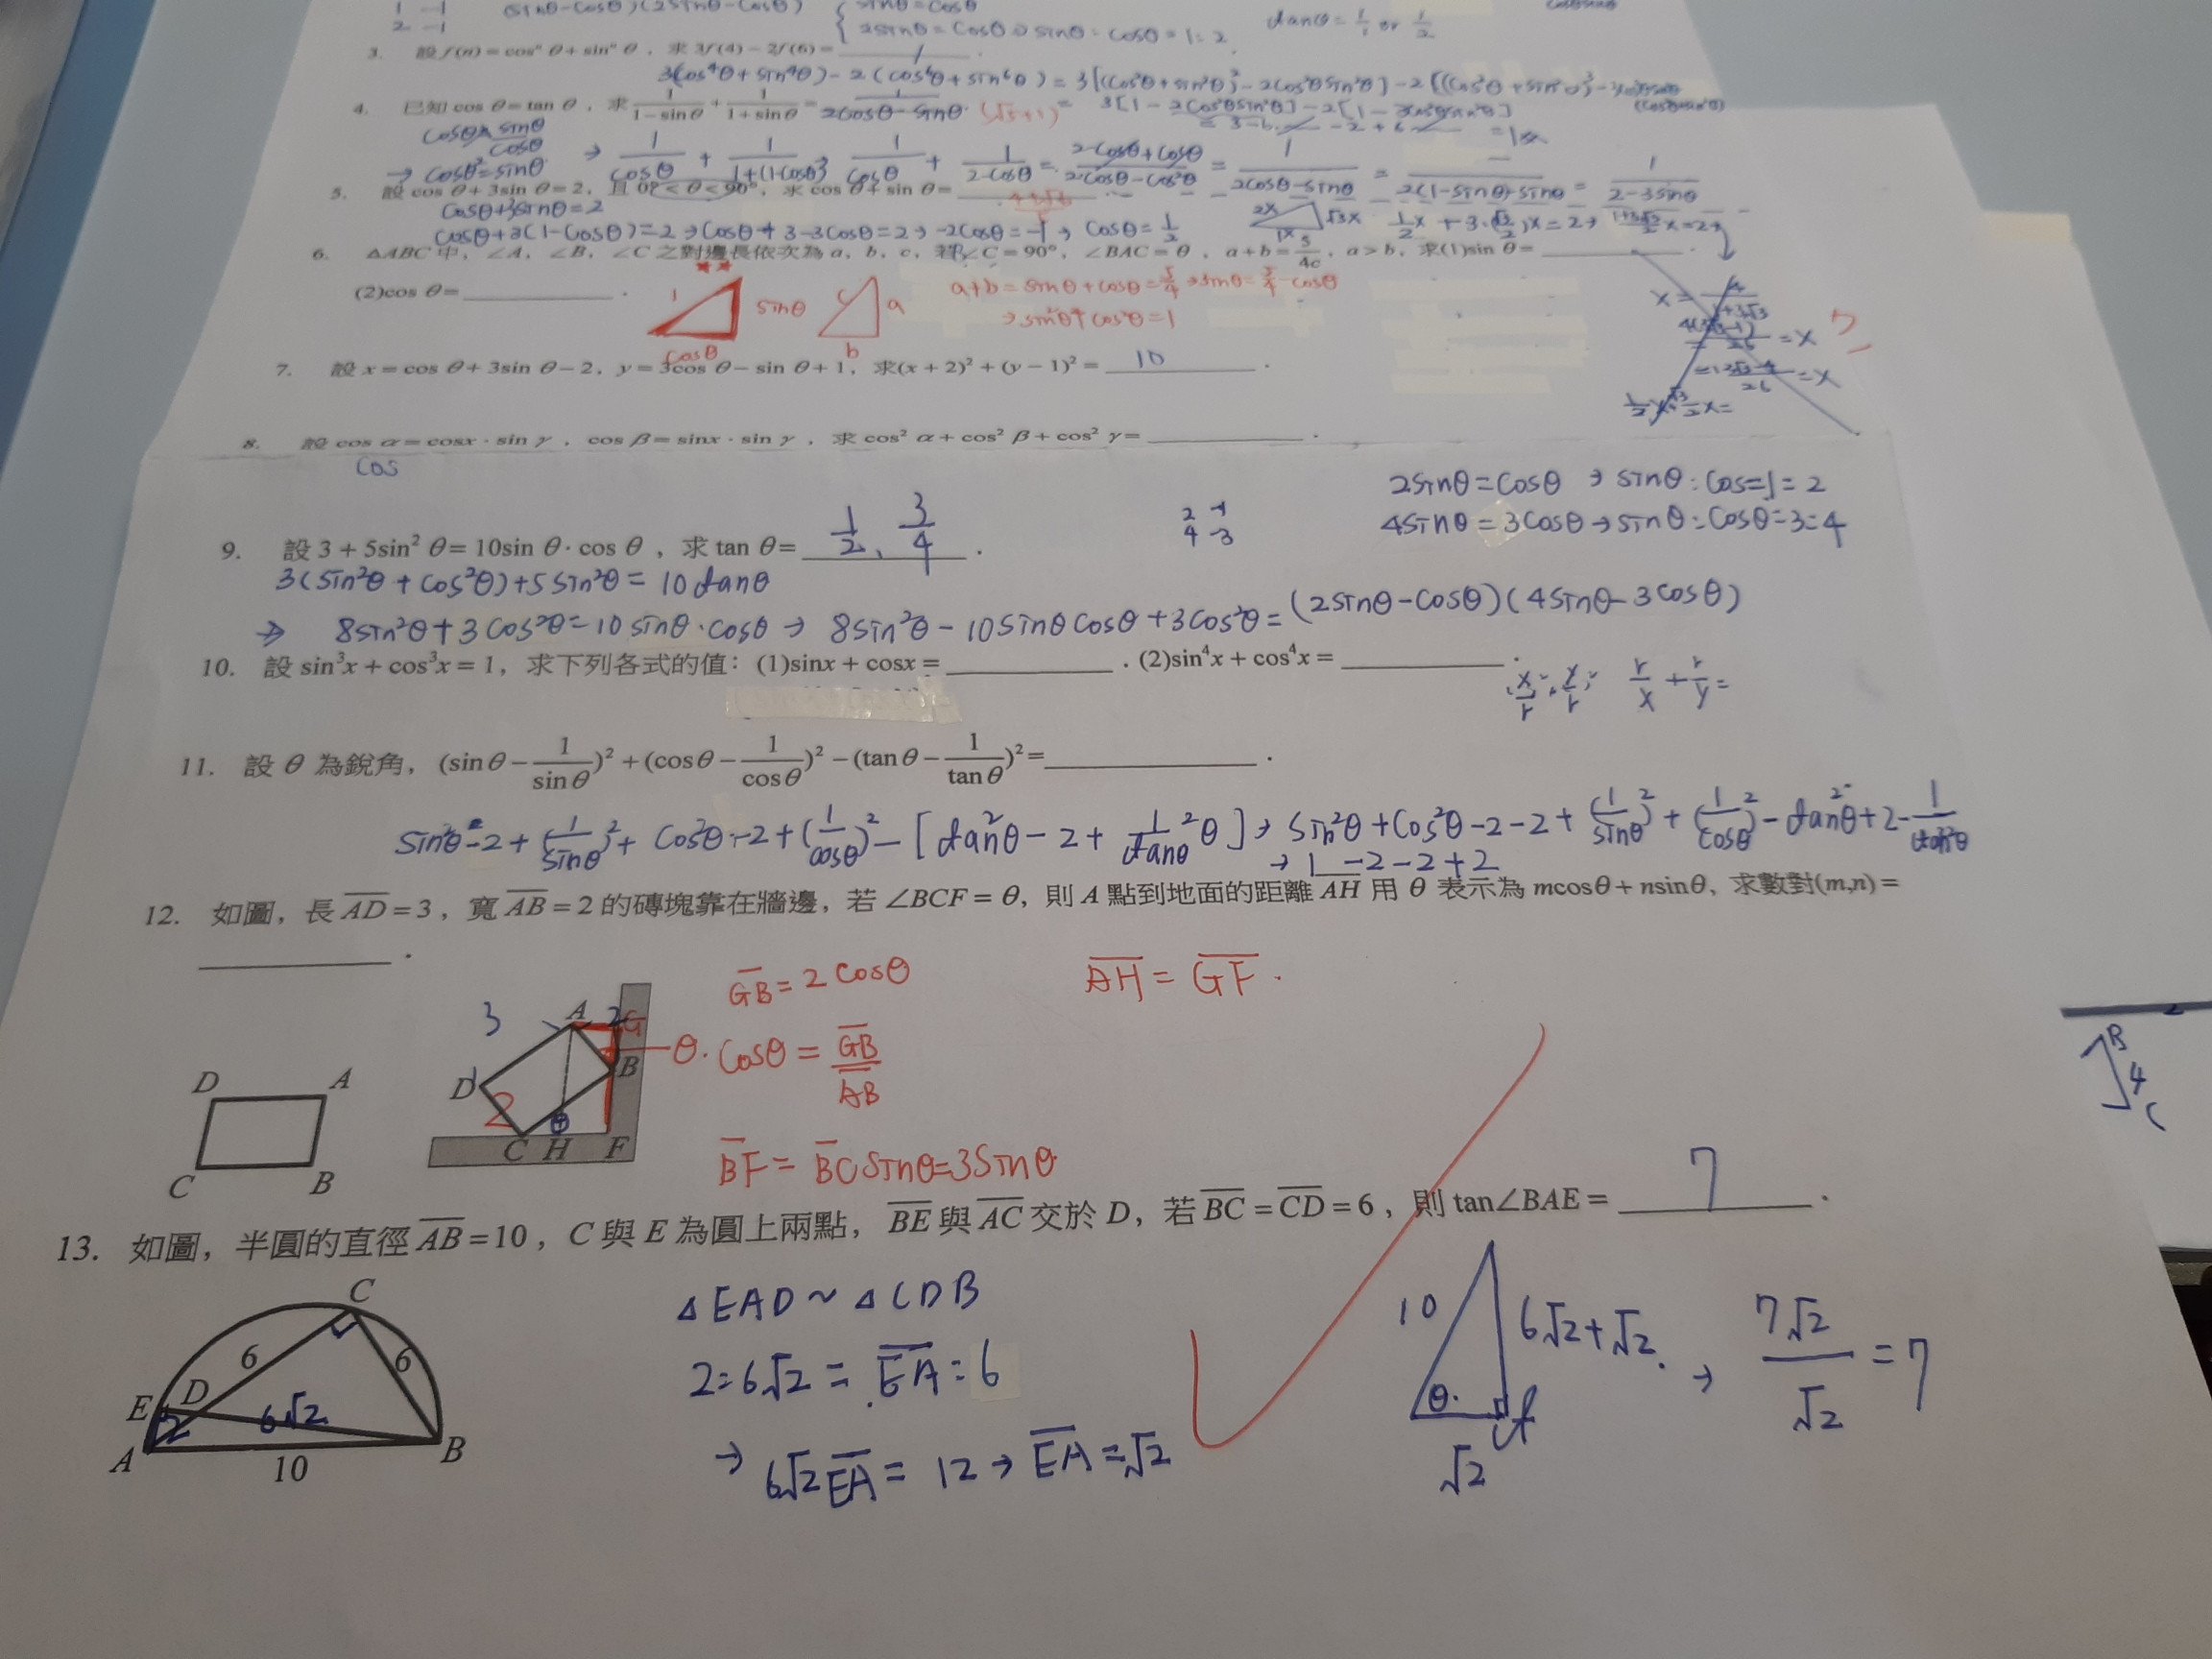 1 -1
2 -1
(sinθ-cosθ)(2sinθ-cosθ)
sinθ=cosθ
2sinθ=cosθ → sinθ:cosθ=1:2
tanθ=1/1 or 1/2
3. 設 f(n)=cosⁿ θ+sinⁿ θ，求 3f(4)-2f(6)= 1 .
3(cos⁴θ+sin⁴θ)-2(cos⁶θ+sin⁶θ)=3[(cos²θ+sin²θ)²-2cos²θsin²θ]-2[(cos²θ+sin²θ)³-
=3[1-2cos²θsin²θ]-2[1-3cos²θsin²θ]
4. 已知 cos θ=tan θ，求 1/(1-sinθ) + 1/(1+sinθ) = 1/(2cosθ-sinθ) . (√5+1)
= 3-6 -2+6 =1
cosθ= sinθ/cosθ
→ cosθ²=sinθ
→ 1/cosθ + 1/(1+(1-cosθ)) 1/cosθ + 1/(2-cosθ) = (2-cosθ+cosθ)/(2cosθ-cos²θ) = 1/(2cosθ-sinθ) = 1/(2(1-sinθ)-sinθ) = 1/(2-3sinθ)
5. 設 cos θ+3sin θ=2，且 0°<θ<90°，求 cos θ+sin θ=
cosθ+3sinθ=2
cosθ+3(1-cosθ)=2 → cosθ+3-3cosθ=2 → -2cosθ=-1 → cosθ=1/2
2x √3x 1x
1/2x+3·(√3/2)x=2 → (1+3√3)/2 x=2
6. △ABC 中，∠A，∠B，∠C 之對邊長依次為 a，b，c，若∠C=90°，∠BAC=θ，a+b=5/4c，a>b，求(1)sin θ= ____
(2)cos θ= ____ .
★★
1 sinθ cosθ
c a b
a+b=sinθ+cosθ=5/4 → sinθ=5/4-cosθ
→ sin²θ+cos²θ=1
7. 設 x=cos θ+3sin θ-2，y=3cos θ-sin θ+1，求(x+2)²+(y-1)²= 10 .
8. 設 cos α=cosx·sin γ，cos β=sinx·sin γ，求 cos² α+cos² β+cos² γ= ____ .
cos
2sinθ=cosθ → sinθ:cos=1=2
4sinθ=3cosθ → sinθ:cosθ=3=4
2 -1
4 -3
9. 設 3+5sin² θ=10sin θ·cos θ，求 tan θ= 1/2、3/4 .
3(sin²θ+cos²θ)+5sin²θ=10tanθ
→ 8sin²θ+3cos²θ=10sinθ·cosθ → 8sin²θ-10sinθcosθ+3cos²θ=(2sinθ-cosθ)(4sinθ-3cosθ)
10. 設 sin³x+cos³x=1，求下列各式的值：(1)sinx+cosx= ____ . (2)sin⁴x+cos⁴x= ____ .
r/x + r/y =
11. 設 θ 為銳角，(sinθ-1/sinθ)²+(cosθ-1/cosθ)²-(tanθ-1/tanθ)²= ____ .
sin²θ-2+(1/sinθ)²+cos²θ-2+(1/cosθ)²-[tan²θ-2+1/tanθ²θ] → sin²θ+cos²θ-2-2+(1/sinθ)²+(1/cosθ)²-tan²θ+2-1/tan²θ
→ 1-2-2+2
12. 如圖，長 AD=3，寬 AB=2 的磚塊靠在牆邊，若 ∠BCF=θ，則 A 點到地面的距離 AH 用 θ 表示為 mcosθ+nsinθ，求數對(m,n)=
____ .
GB=2cosθ
AH=GF.
D A C B
3 A 2 G D B 2 θ C H F
θ. cosθ=GB/AB
BF=BCsinθ=3sinθ
B 4 C
13. 如圖，半圓的直徑 AB=10，C 與 E 為圓上兩點，BE 與 AC 交於 D，若 BC=CD=6，則 tan∠BAE= 7 .
C 6 6 E D 2 6√2 A 10 B
△EAD~△CDB
2=6√2=EA=6
→ 6√2EA=12 → EA=√2
10 6√2+√2 θ √2
→ 7√2/√2=7